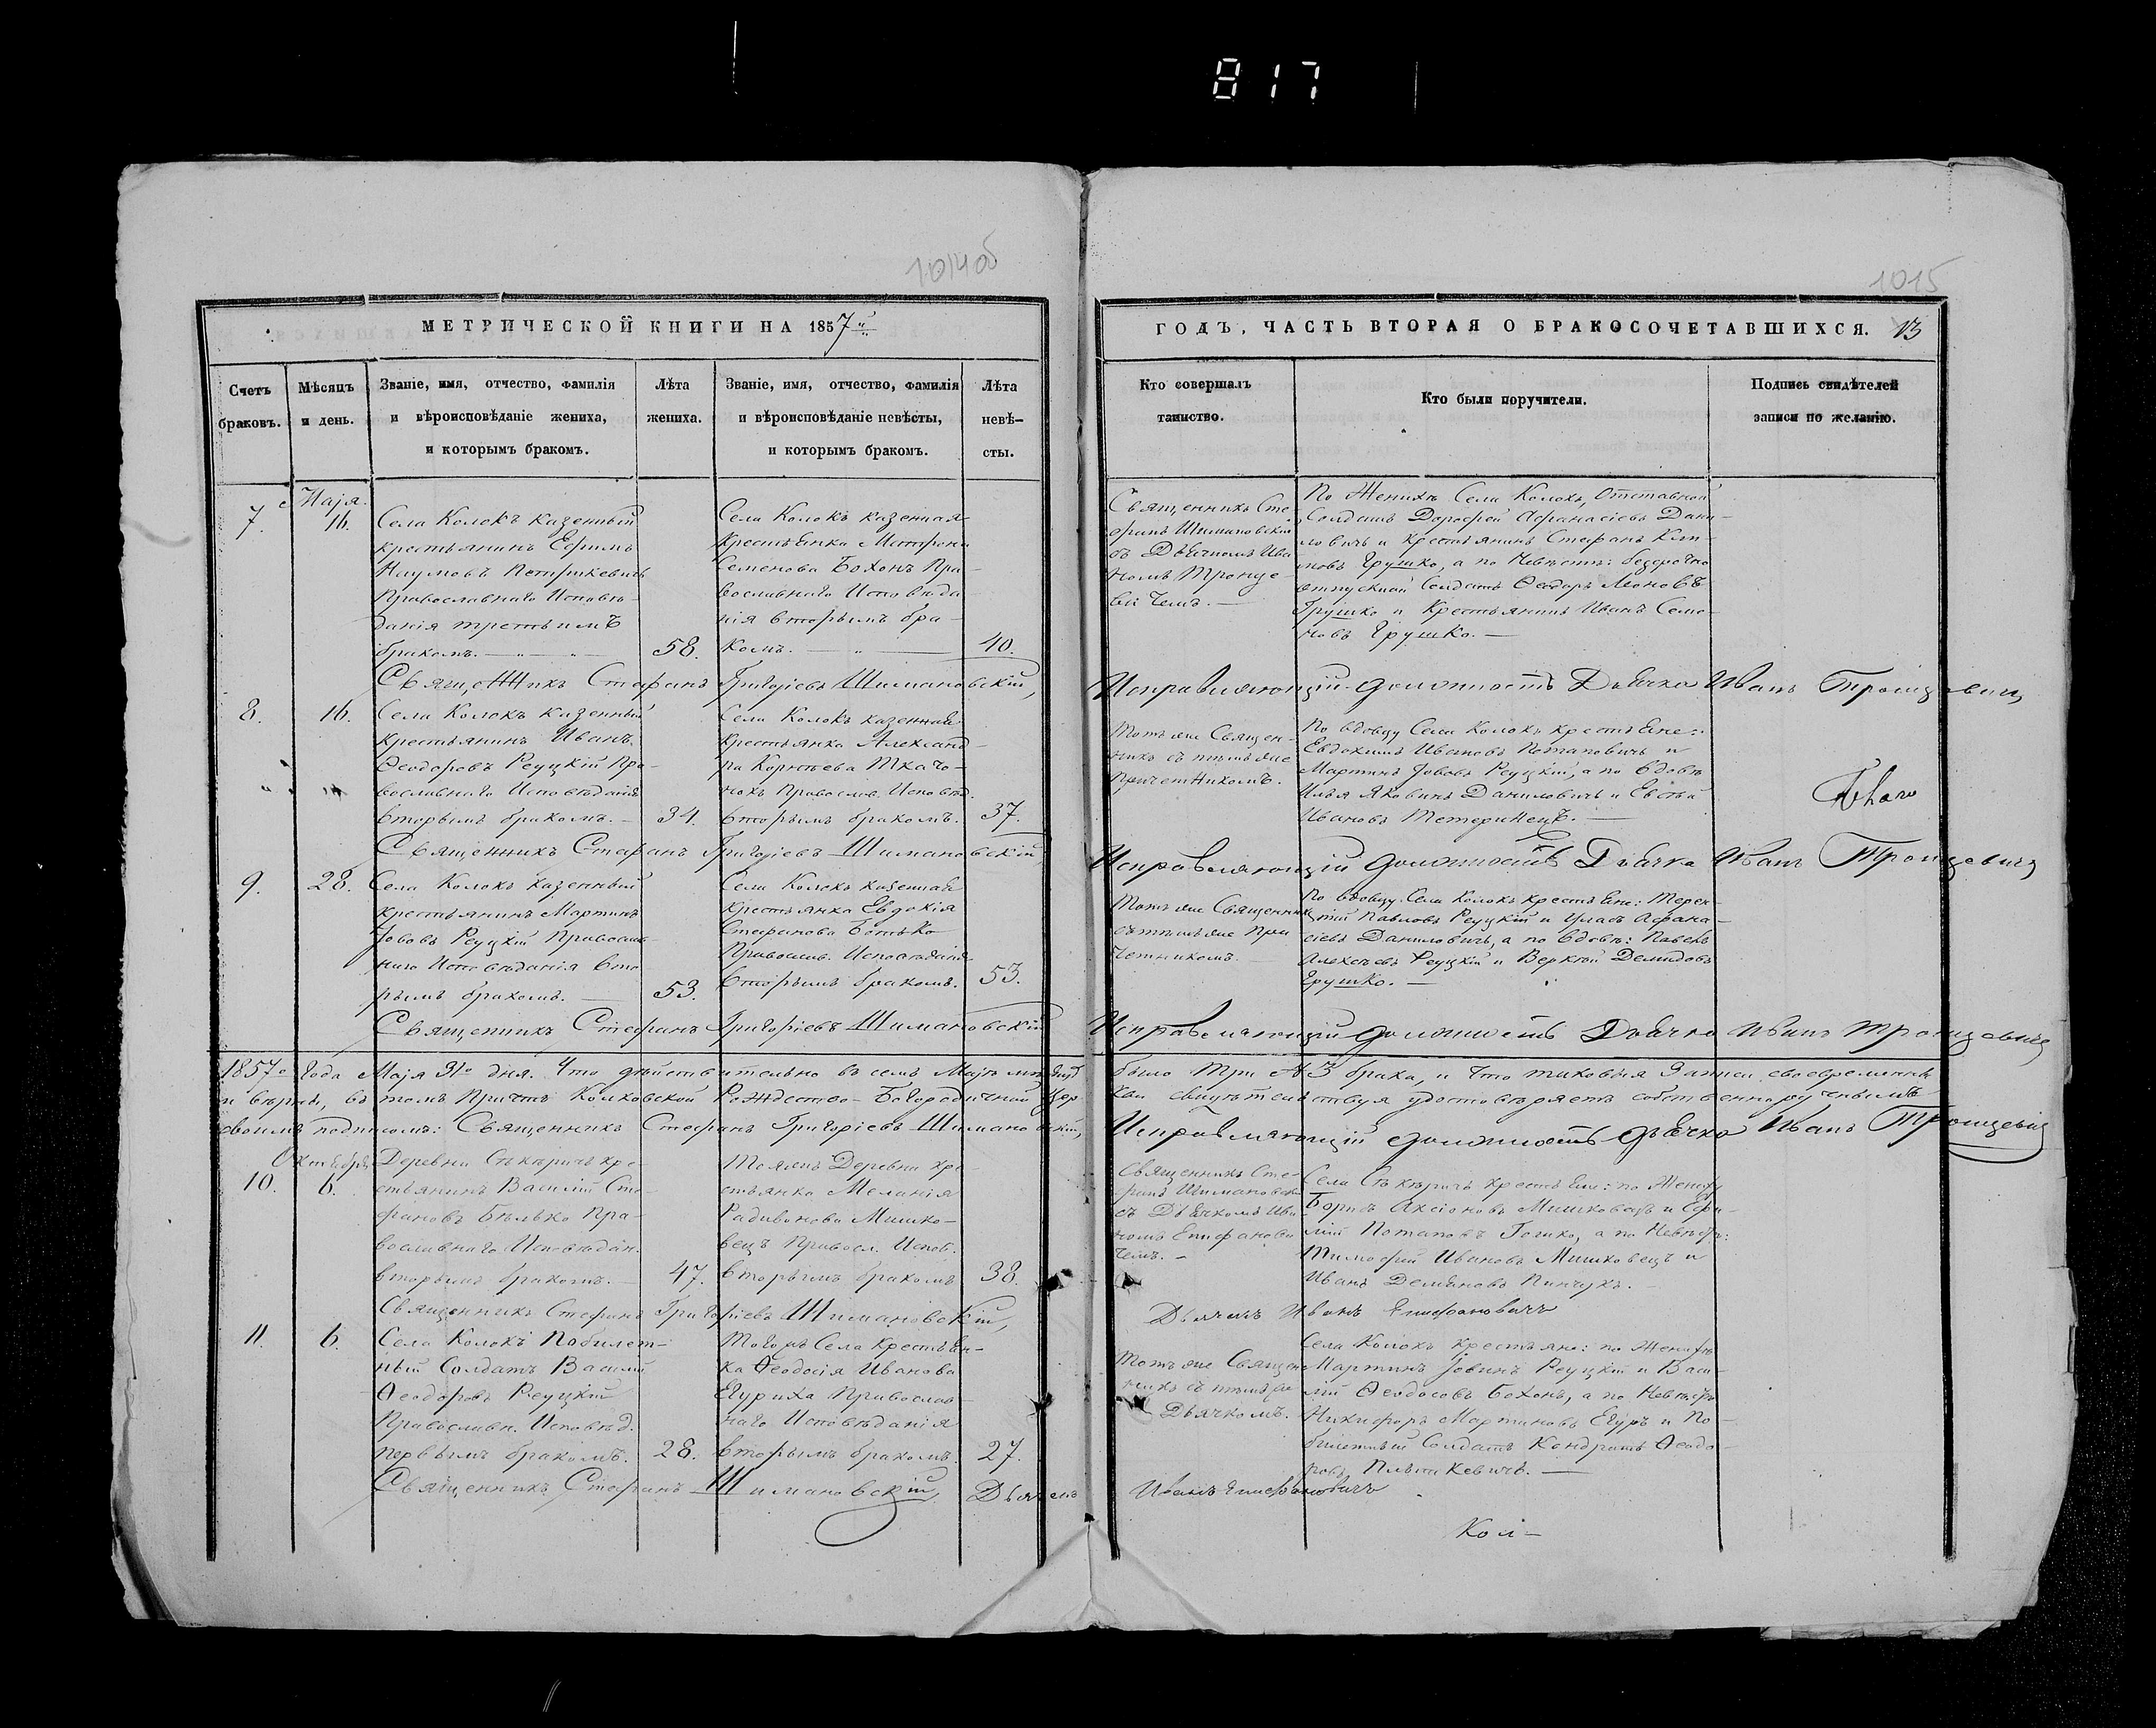 817
1014об
1015
МЕТРИЧЕСКОЙ КНИГИ НА 1857й
ГОДЪ, ЧАСТЬ ВТОРАЯ О БРАКОСОЧЕТАВШИХСЯ. 13
Счетъ браковъ.
Мѣсяцъ и день.
Званіе, имя, отчество, фамилія
и вѣроисповѣданіе жениха,
и которымъ бракомъ.
Лѣта жениха.
Званіе, имя, отчество, фамилія
и вѣроисповѣданіе невѣсты,
и которымъ бракомъ.
Лѣта невѣ-
сты.
Кто совершалъ
таинство.
Кто были поручители.
Подпись свидѣтелей
записи по желанію.
7.
Маія
16.
Села Колокъ казенный
крестьянинъ Ефимъ
Наумовъ
Православнаго Исповѣ-
данія третьимъ
бракомъ.
58.
Села Колокъ казенная
крестьянка Матрона
Семенова Бохонъ Пра-
вославнаго Исповѣда
нія вторымъ бра-
комъ.
40.
Священникъ Сте
фанъ Шимановскій
съ Дьячкомъ Ива
номъ Троице-
вичемъ.
По Женихѣ Села Колокъ, Отставной
Солдатъ Дорофей Афанасіевъ Дани-
ловичъ и Крестьянинъ Стефанъ
Грушко, а по Невѣстѣ: безсрочно
отпускной Солдатъ Ѳеодоръ Леоновъ
Грушко и Крестьянинъ Иванъ Семе-
новъ Грушко.
Священникъ Стефанъ Григоріевъ Шимановскій,
Исправляющій должность Дьячка Иванъ Троицевичъ
8.
16.
Села Колокъ казенный
крестьянинъ Иванъ
Ѳеодоровъ Реуцкій Пра-
вославнаго Исповѣданія
вторымъ бракомъ.
34.
Села Колокъ казенная
крестьянка Александ-
ра Корнѣева Ткачо-
нокъ Православ. Исповѣд.
вторымъ бракомъ.
37.
Тотъ же Священ-
никъ съ тѣмъ же
причетникомъ.
По вдовцу Села Колокъ крестьяне:
Евдокимъ Ивановъ Потаповичъ и
Мартинъ Іововъ Реуцкій, а по вдовѣ
Илья Яковинъ Даниловичъ и Евстай
Ивановъ Тетеринецъ.
Священникъ Стефанъ Григоріевъ Шимановскій,
Исправляющій должность Дьячка Иванъ Троицевичъ
9.
28.
Села Колокъ казенный
крестьянинъ Мартинъ
Іововъ Реуцкій Православ
наго Исповѣданія вто
рымъ бракомъ.
53.
Села Колокъ казенная
крестьянка Евдокія
Стефанова Ботько
Православ. Исповѣданія
вторымъ бракомъ.
53.
Тотъ же Священникъ
съ тѣмъ же При
четникомъ.
По вдовцу Села Колокъ крестьяне: Терен-
тій Павловъ Реуцкій и Уласъ Афана-
сіевъ Даниловичъ, а по вдовѣ: Павелъ
Алексѣевъ Реуцкій и Веркѣй Демидовъ
Грушко.
Священникъ Стефанъ Григоріевъ Шимановскій
Исправляющій должность Дьячка Иванъ Троицевичъ
1857го Года Маія 31го дня. Что дѣйствительно въ семъ Маіѣ мѣсяцѣ было Три 3 брака, и что таковыя Записи своевременны
и вѣрны, въ томъ Причтъ Колковской Рождество-Богородичной Цер кви свидѣтельствуя удостовѣряетъ собственноручнымъ
своимъ подписомъ: Священникъ Стефанъ Григоріевъ Шимановскій, Исправляющій должность дьячка Иванъ Троицевичъ
10.
Октября
6.
Деревни Сѣкѣричъ кре-
стьянинъ Василій Сте-
фановъ Бѣлько Пра-
вославнаго Исповѣдан.
вторымъ бракомъ.
47.
Тояжъ Деревни кре
стьянка Меланія
Радивонова Мишко-
вецъ Правосл. Испов.
вторымъ бракомъ
38.
Священникъ Сте-
фанъ Шимановск
съ Дьячкомъ Ива
номъ Епифанови
чемъ.
Села Сѣкѣричъ крестьяне: по Жениху
Борисъ Аксіоновъ Мишковецъ и
Потаповъ Голико, а по Невѣстѣ:
Тимофей Ивановъ Мишковецъ и
Иванъ Демяновъ Пинчукъ.
Священникъ Стефанъ Григоріевъ Шимановскій,
Дьячекъ Иванъ Епифановичъ
11.
6.
Села Колокъ Побилет-
ный Солдатъ Василій
Ѳеодоровъ Реуцкій
Православн. Исповѣд.
первымъ бракомъ.
28.
Тогожъ Села Крестьян-
ка Ѳеодосія Иванова
Егуриха Православ-
наго Исповѣданія
вторымъ бракомъ.
27.
Тотъ же Священ
никъ съ тѣмъ же
Дьячкомъ.
Села Колокъ Крестьяне: по Женихѣ
Мартинъ Іовинъ Реуцкій и Васи-
лій Ѳеодосовъ Бохонъ, а по Невѣстѣ
Никифоръ Мартиновъ Егуръ и По-
билетный Солдатъ Кондратъ Ѳеодо-
ровъ
Священникъ Стефанъ Шимановскій, Дьячекъ Иванъ Епифановичъ
Кол-